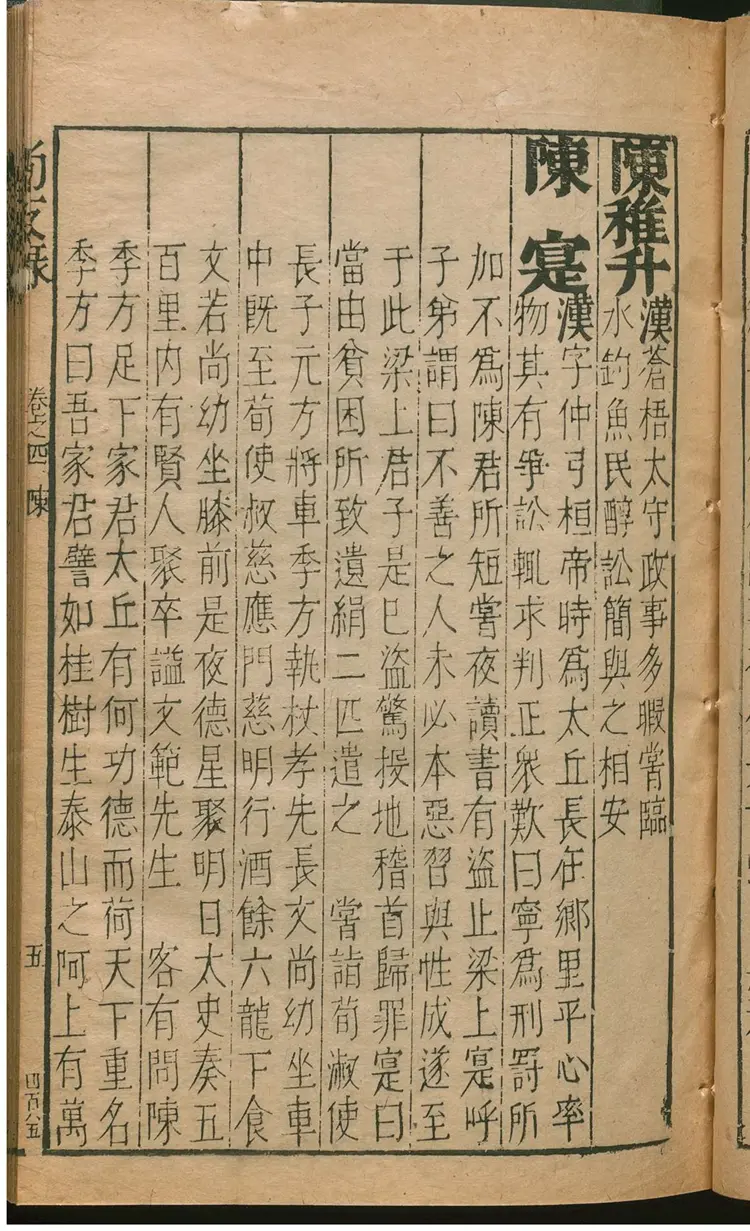 陳稚升
漢蒼梧太守政事多暇嘗臨
水釣魚民醇訟簡與之相安
陳寔
漢字仲弓桓帝時爲太丘長在鄉里平心率
物其有爭訟輒求判正衆歎曰寧爲刑罸所
加不爲陳君所短嘗夜讀書有盜止梁上寔呼
子弟謂曰不善之人未必本惡習與性成遂至
于此梁上君子是已盜驚投地稽首歸罪寔曰
當由貧困所致遺絹二匹遣之 嘗詣荀淑使
長子元方將車季方執杖孝先長文尚幼坐車
中旣至荀使叔慈應門慈明行酒餘六龍下食
文若尚幼坐膝前是夜德星聚明日太史奏五
百里內有賢人聚卒謚文範先生 客有問陳
季方足下家君太丘有何功德而荷天下重名
季方曰吾家君譬如桂樹生泰山之阿上有萬
尚友录
卷之四 陳
五
四百八五